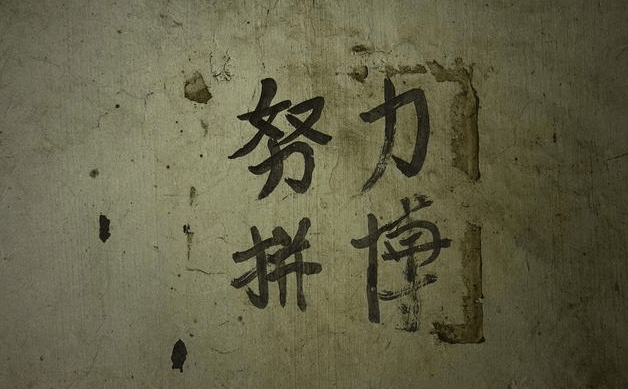 努力
拼博